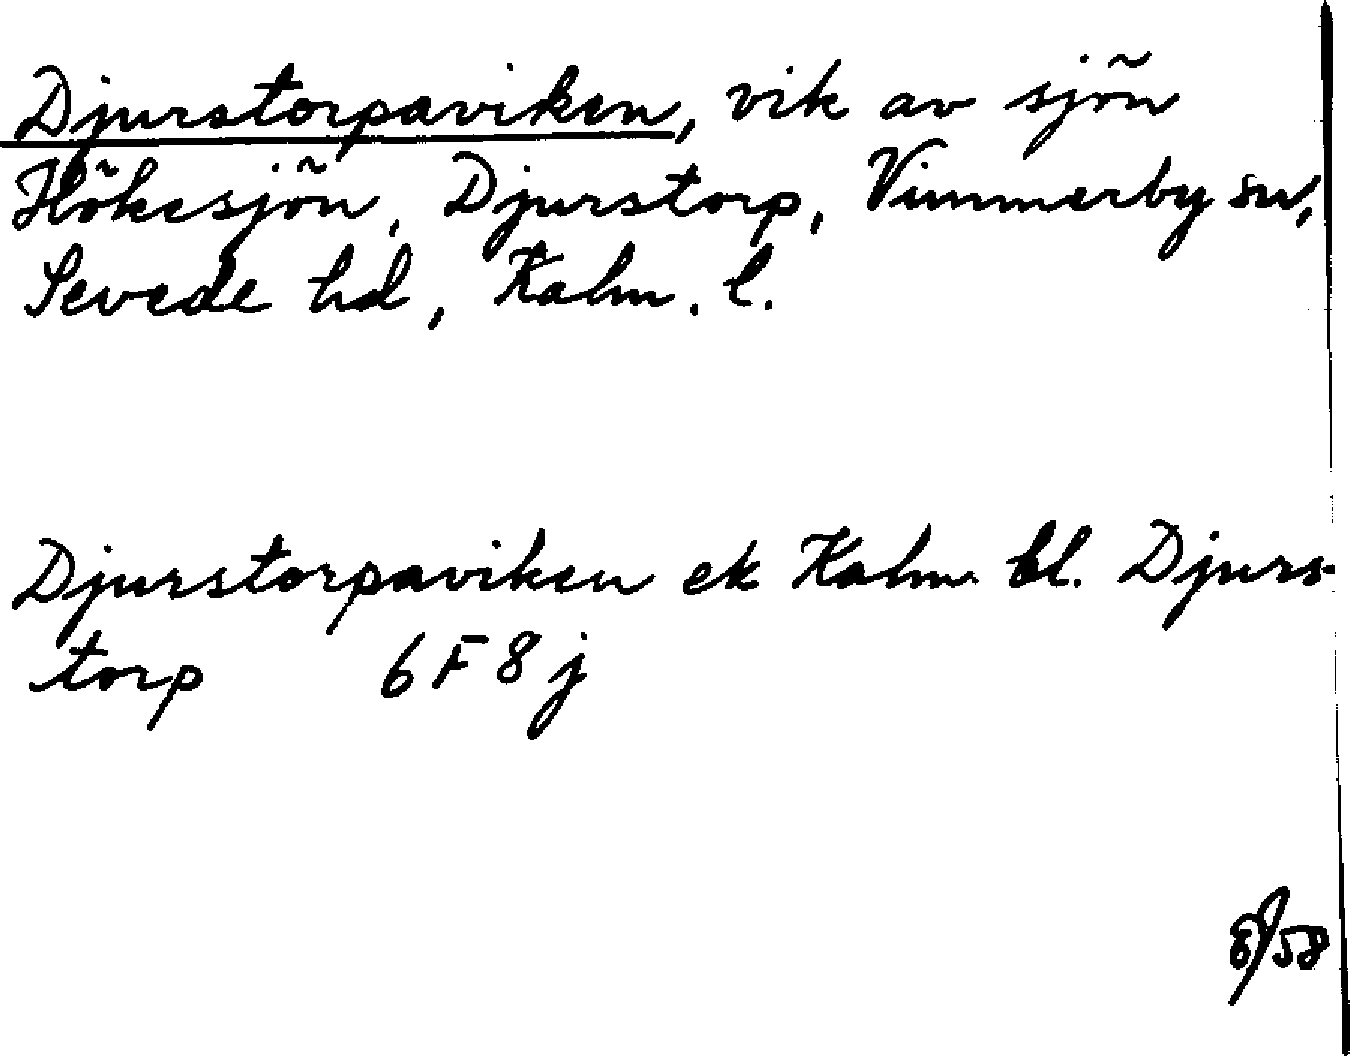 Djurstorpaviken, vik av sjön
Hökesjön, Djurstorp, Vimmerby sn,
Sevede hd, Kalm. l.
Djurstorpaviken ek Kalm. bl. Djurs-
torp 6F8j